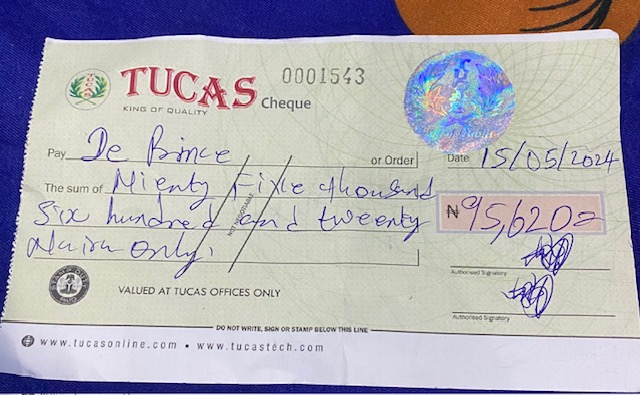 TUCAS
KING OF QUALITY
Cheque
0001543
Pay De Prince or Order
Date 15/05/2024
The sum of Nienty Five thousand
Six hundred and tweenty
Naira only.
NOT NEGOTIABLE
₦95,620=
Authorised Signatory
Authorised Signatory
VALUED AT TUCAS OFFICES ONLY
DO NOT WRITE, SIGN OR STAMP BELOW THIS LINE
www.tucasonline.com • www.tucastech.com